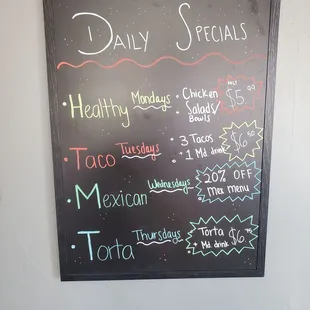 Daily Specials
Healthy Mondays
• Chicken
Salads/
Bowls
$5.99
Taco Tuesdays
• 3 Tacos
+ 1 Md drink
Mexican Wednesdays
20% OFF
mex menu
Torta Thursdays
Torta
+ Md drink